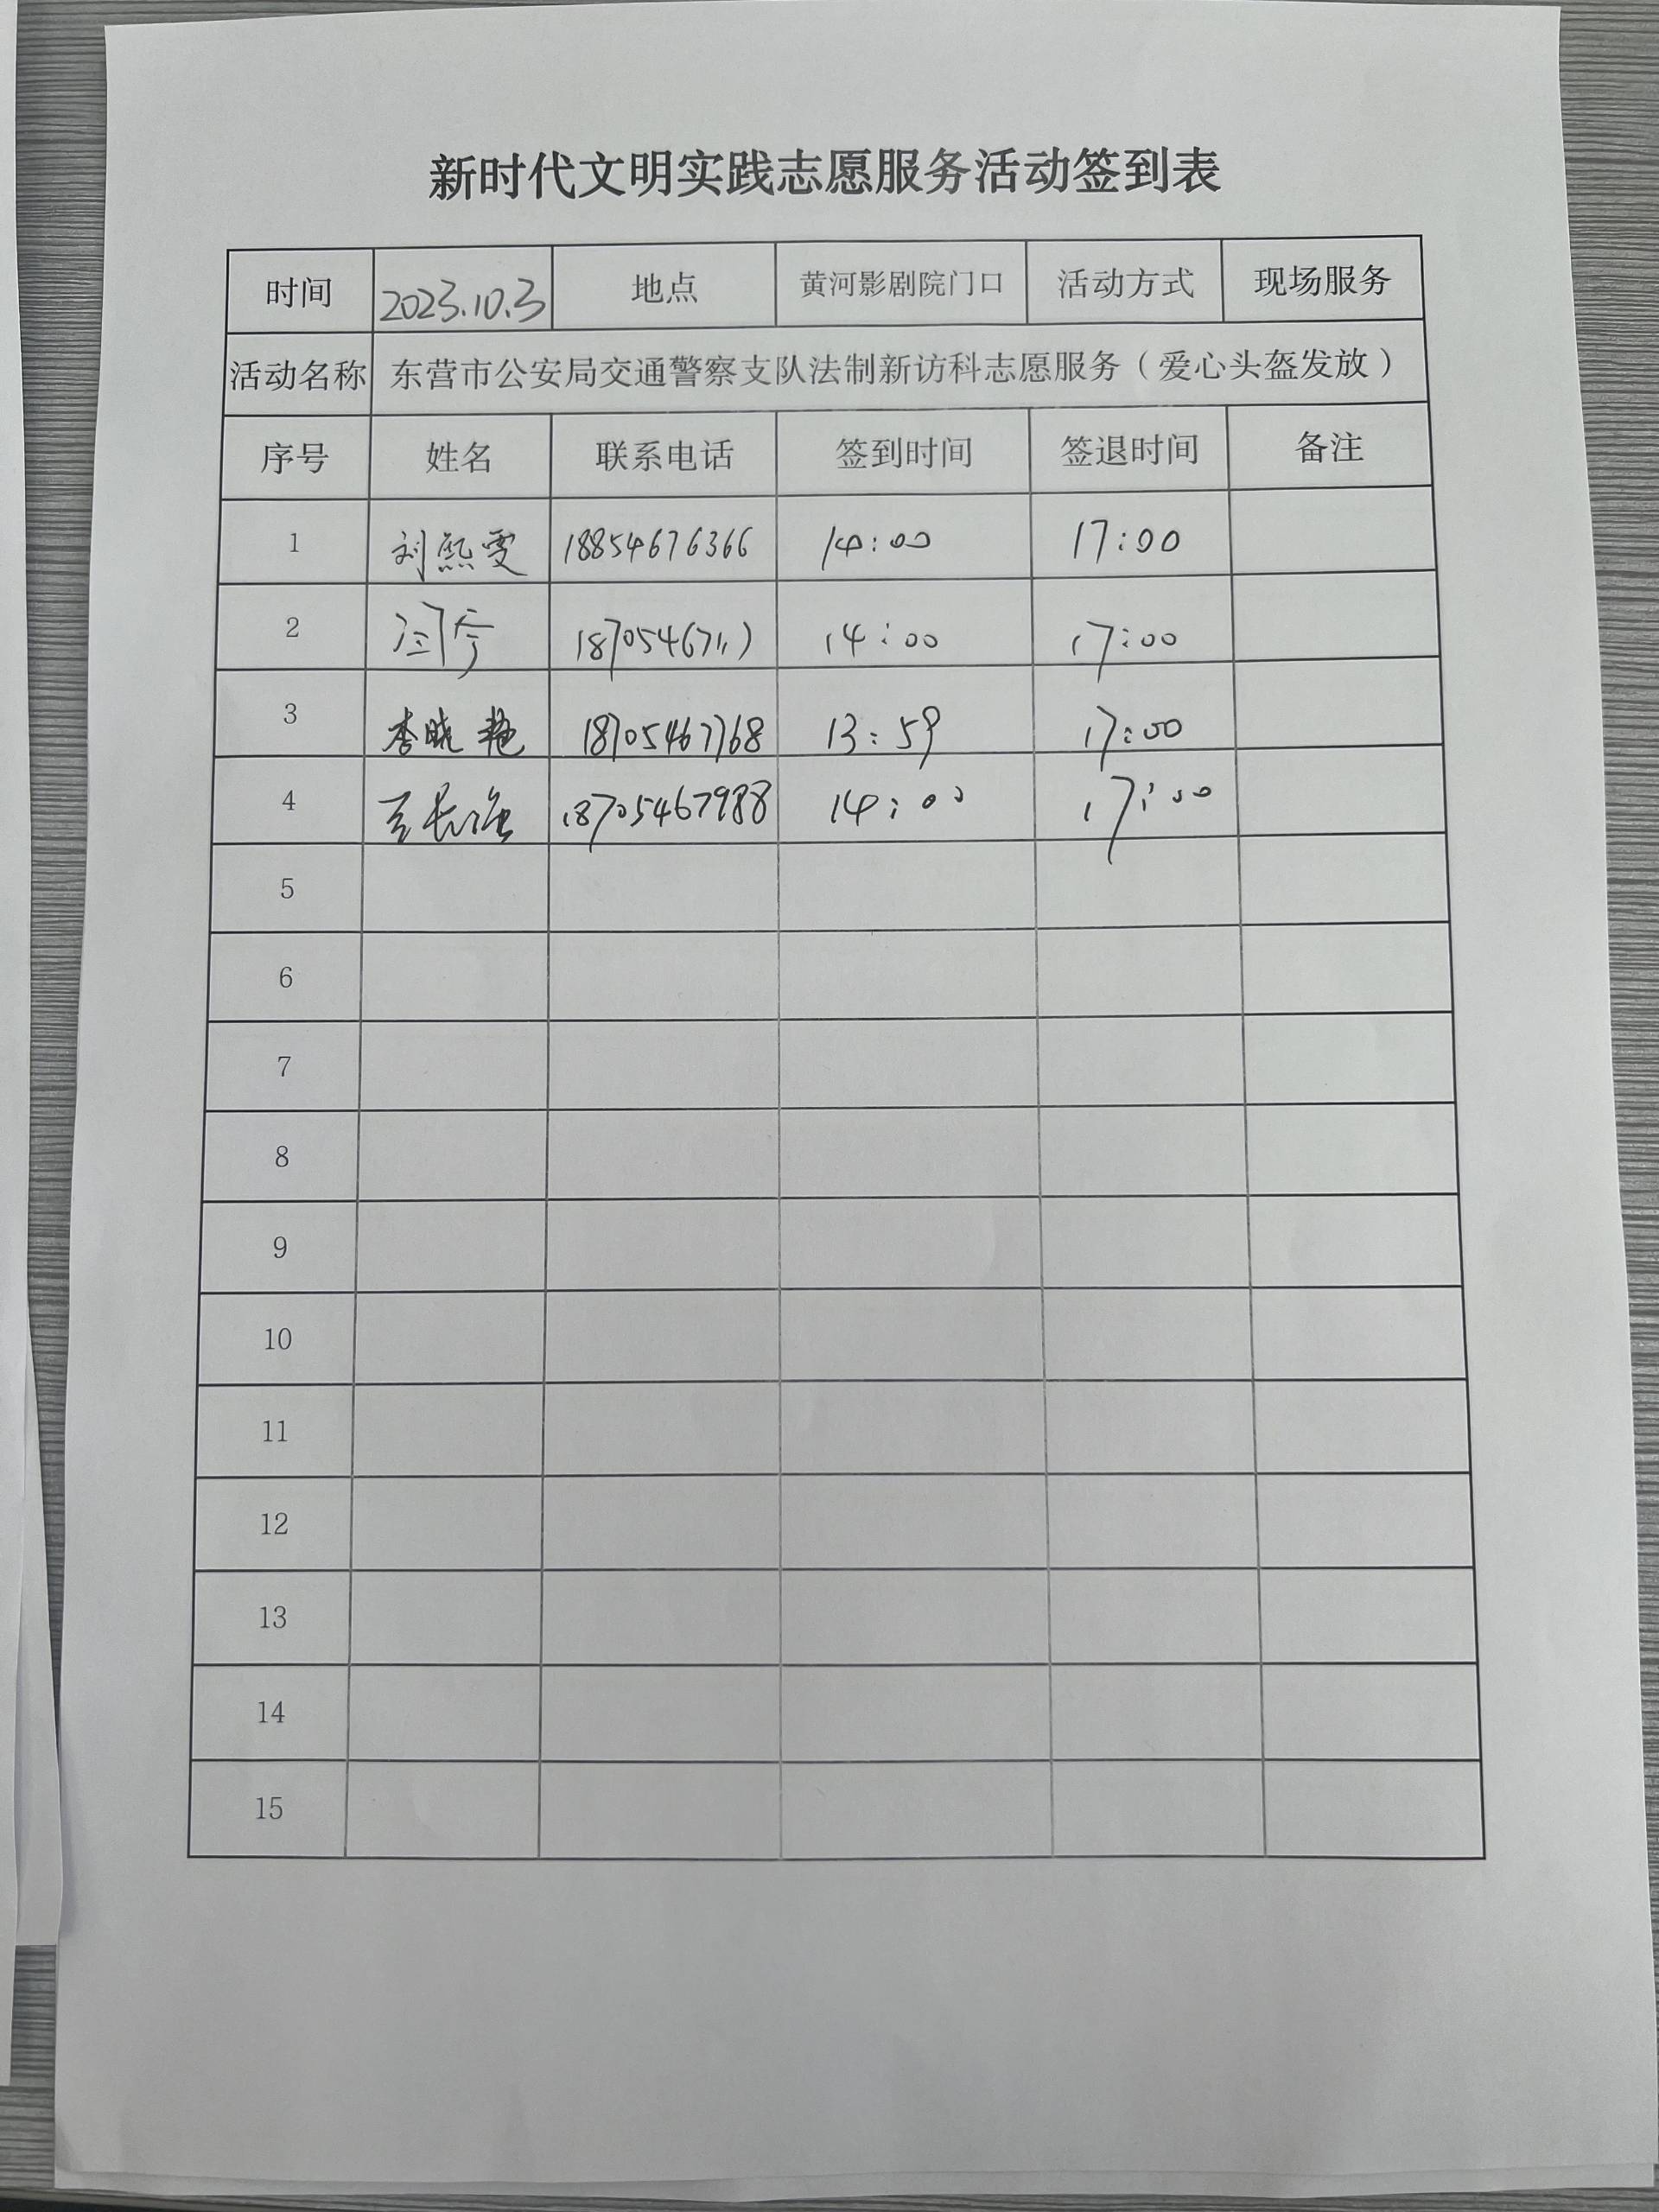 新时代文明实践志愿服务活动签到表
时间 2023.10.3 地点 黄河影剧院门口 活动方式 现场服务
活动名称 东营市公安局交通警察支队法制新访科志愿服务（爱心头盔发放）
序号 姓名 联系电话 签到时间 签退时间 备注
1 刘熙雯 18854676366 14:00 17:00
2 14:00 17:00
3 李晓艳 18705467768 13:59 17:00
4 18705467988 14:00 17:00
5
6
7
8
9
10
11
12
13
14
15